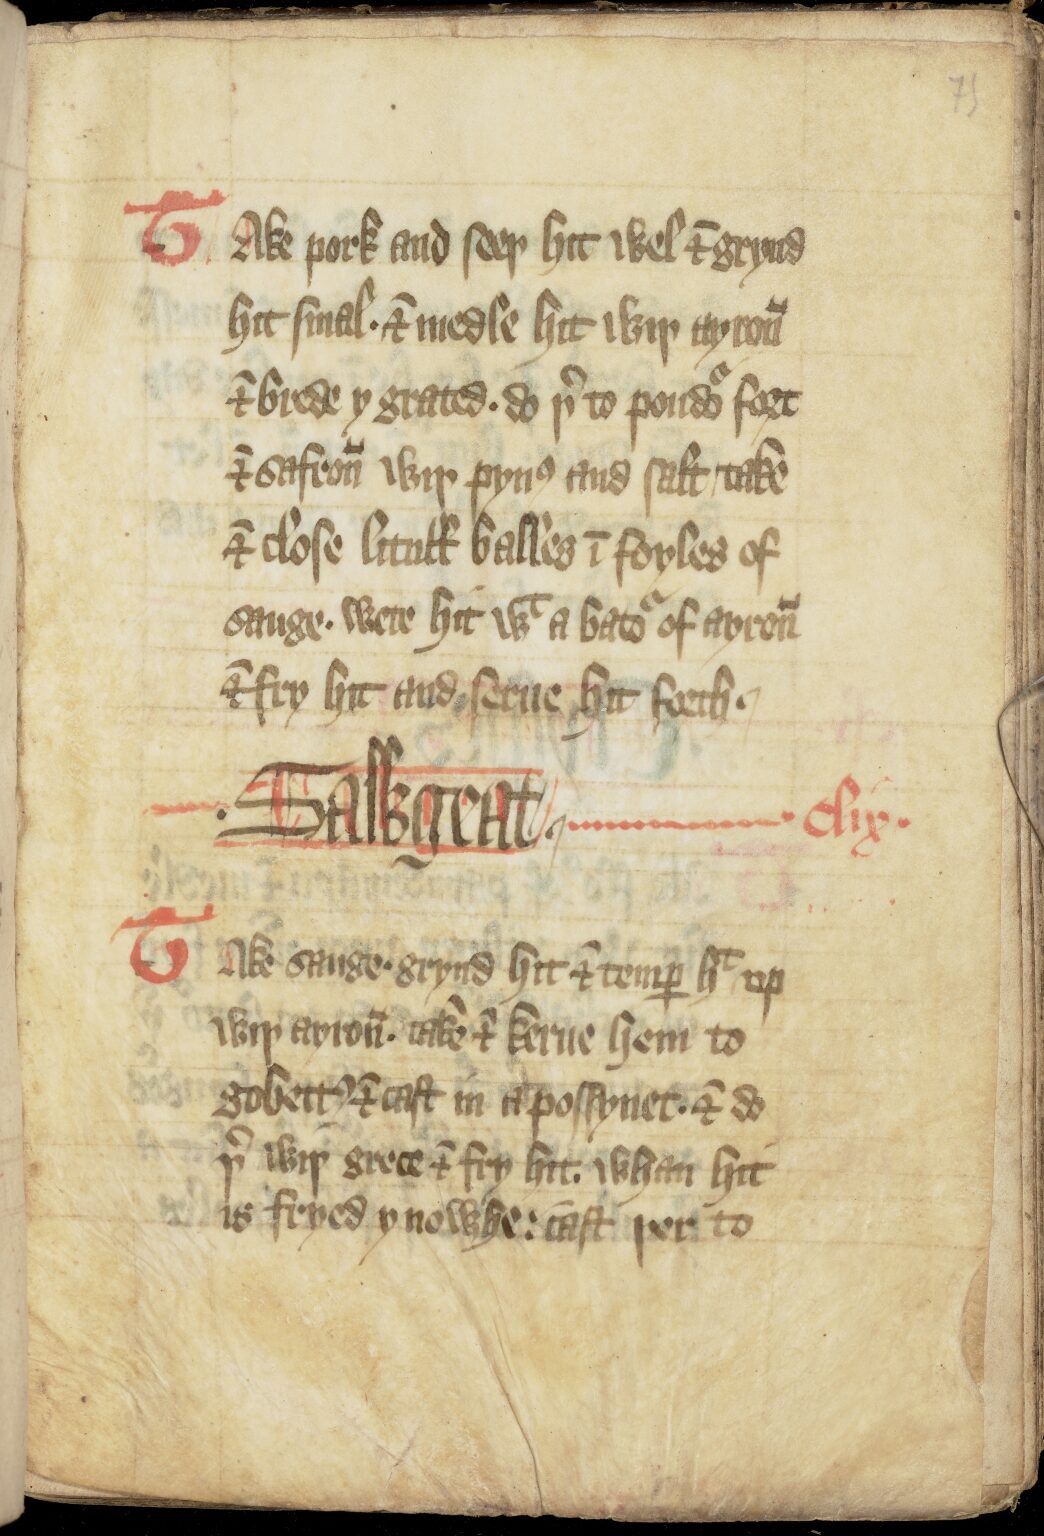 75
TAke pork and seeþ hit wel ⁊ grynd
hit smal. ⁊ medle hit wiþ ayroū
⁊ brede y grated. do þ͛ to poudo͛ fort
⁊ safroū wiþ pynꝰ and salt take
⁊ close litull balles ī foyles of
sauge. wete hit wᵗ a bato͛ of ayroū
⁊ fry hit and serue hit forth.
Sawgeat. clix.
TAke sauge. grynd hit ⁊ temꝑ hᵗ up
wiþ ayroū. take ⁊ kerue hem to
gobettꝰ ⁊ cast in a possynet. ⁊ do
þ͛ wiþ grece ⁊ fry hit. whan hit
is fryed ynowhe: cast þer to